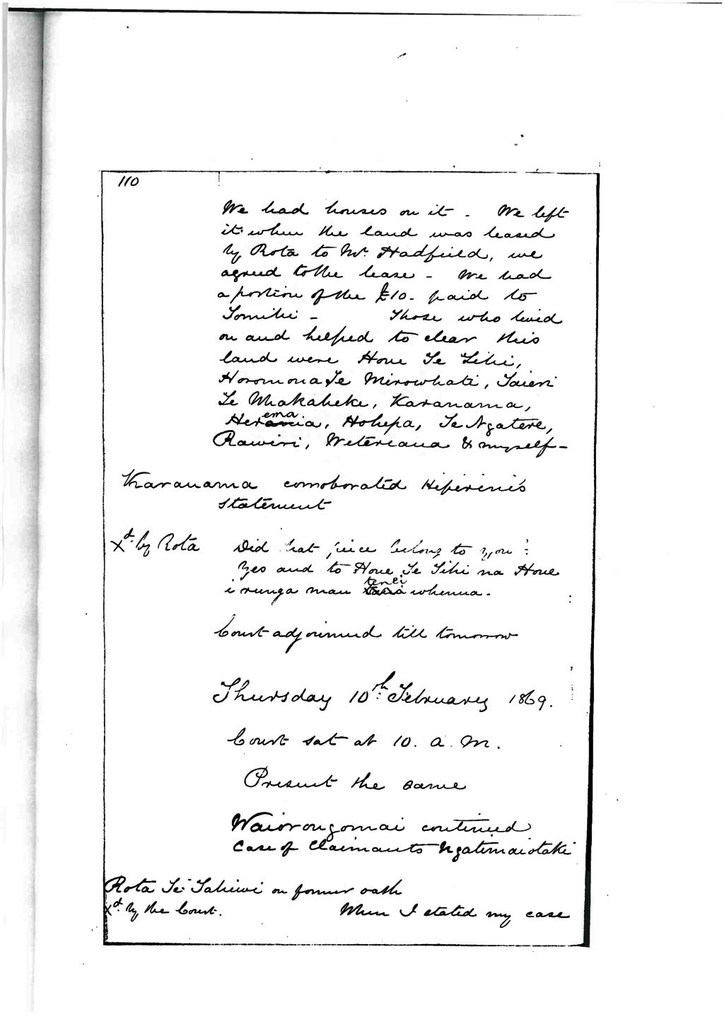 110
We had houses on it - We left
it when the land was leased
by Rota to Mr Hadfield, we
agreed to the lease - We had
a portion of the £10. paid to
Tomihi - Those who lived
on and helped to clear this
land were Hone Te Tihi,
Horomona Te Mirowhati, Taieri
Te Whakaheke, Karanama,
Herema, Hohepa, Te Ngatete,
Rawiri, & myself -
Karanama corroborated Hipirini's
statement
Xd. by Rota Did that piece belong to you?
Yes and to Hone Te Tihi na Hone
i runga mau tenei whenua.
Court adjourned till tomorrow
Thursday 10th February 1869.
Court sat at 10. a. m.
Present the same
Waiorongomai continued
Case of Claimants Ngatimaiotaki
Rota Te Tahiwi on former oath
Xd. by the Court. When I stated my case